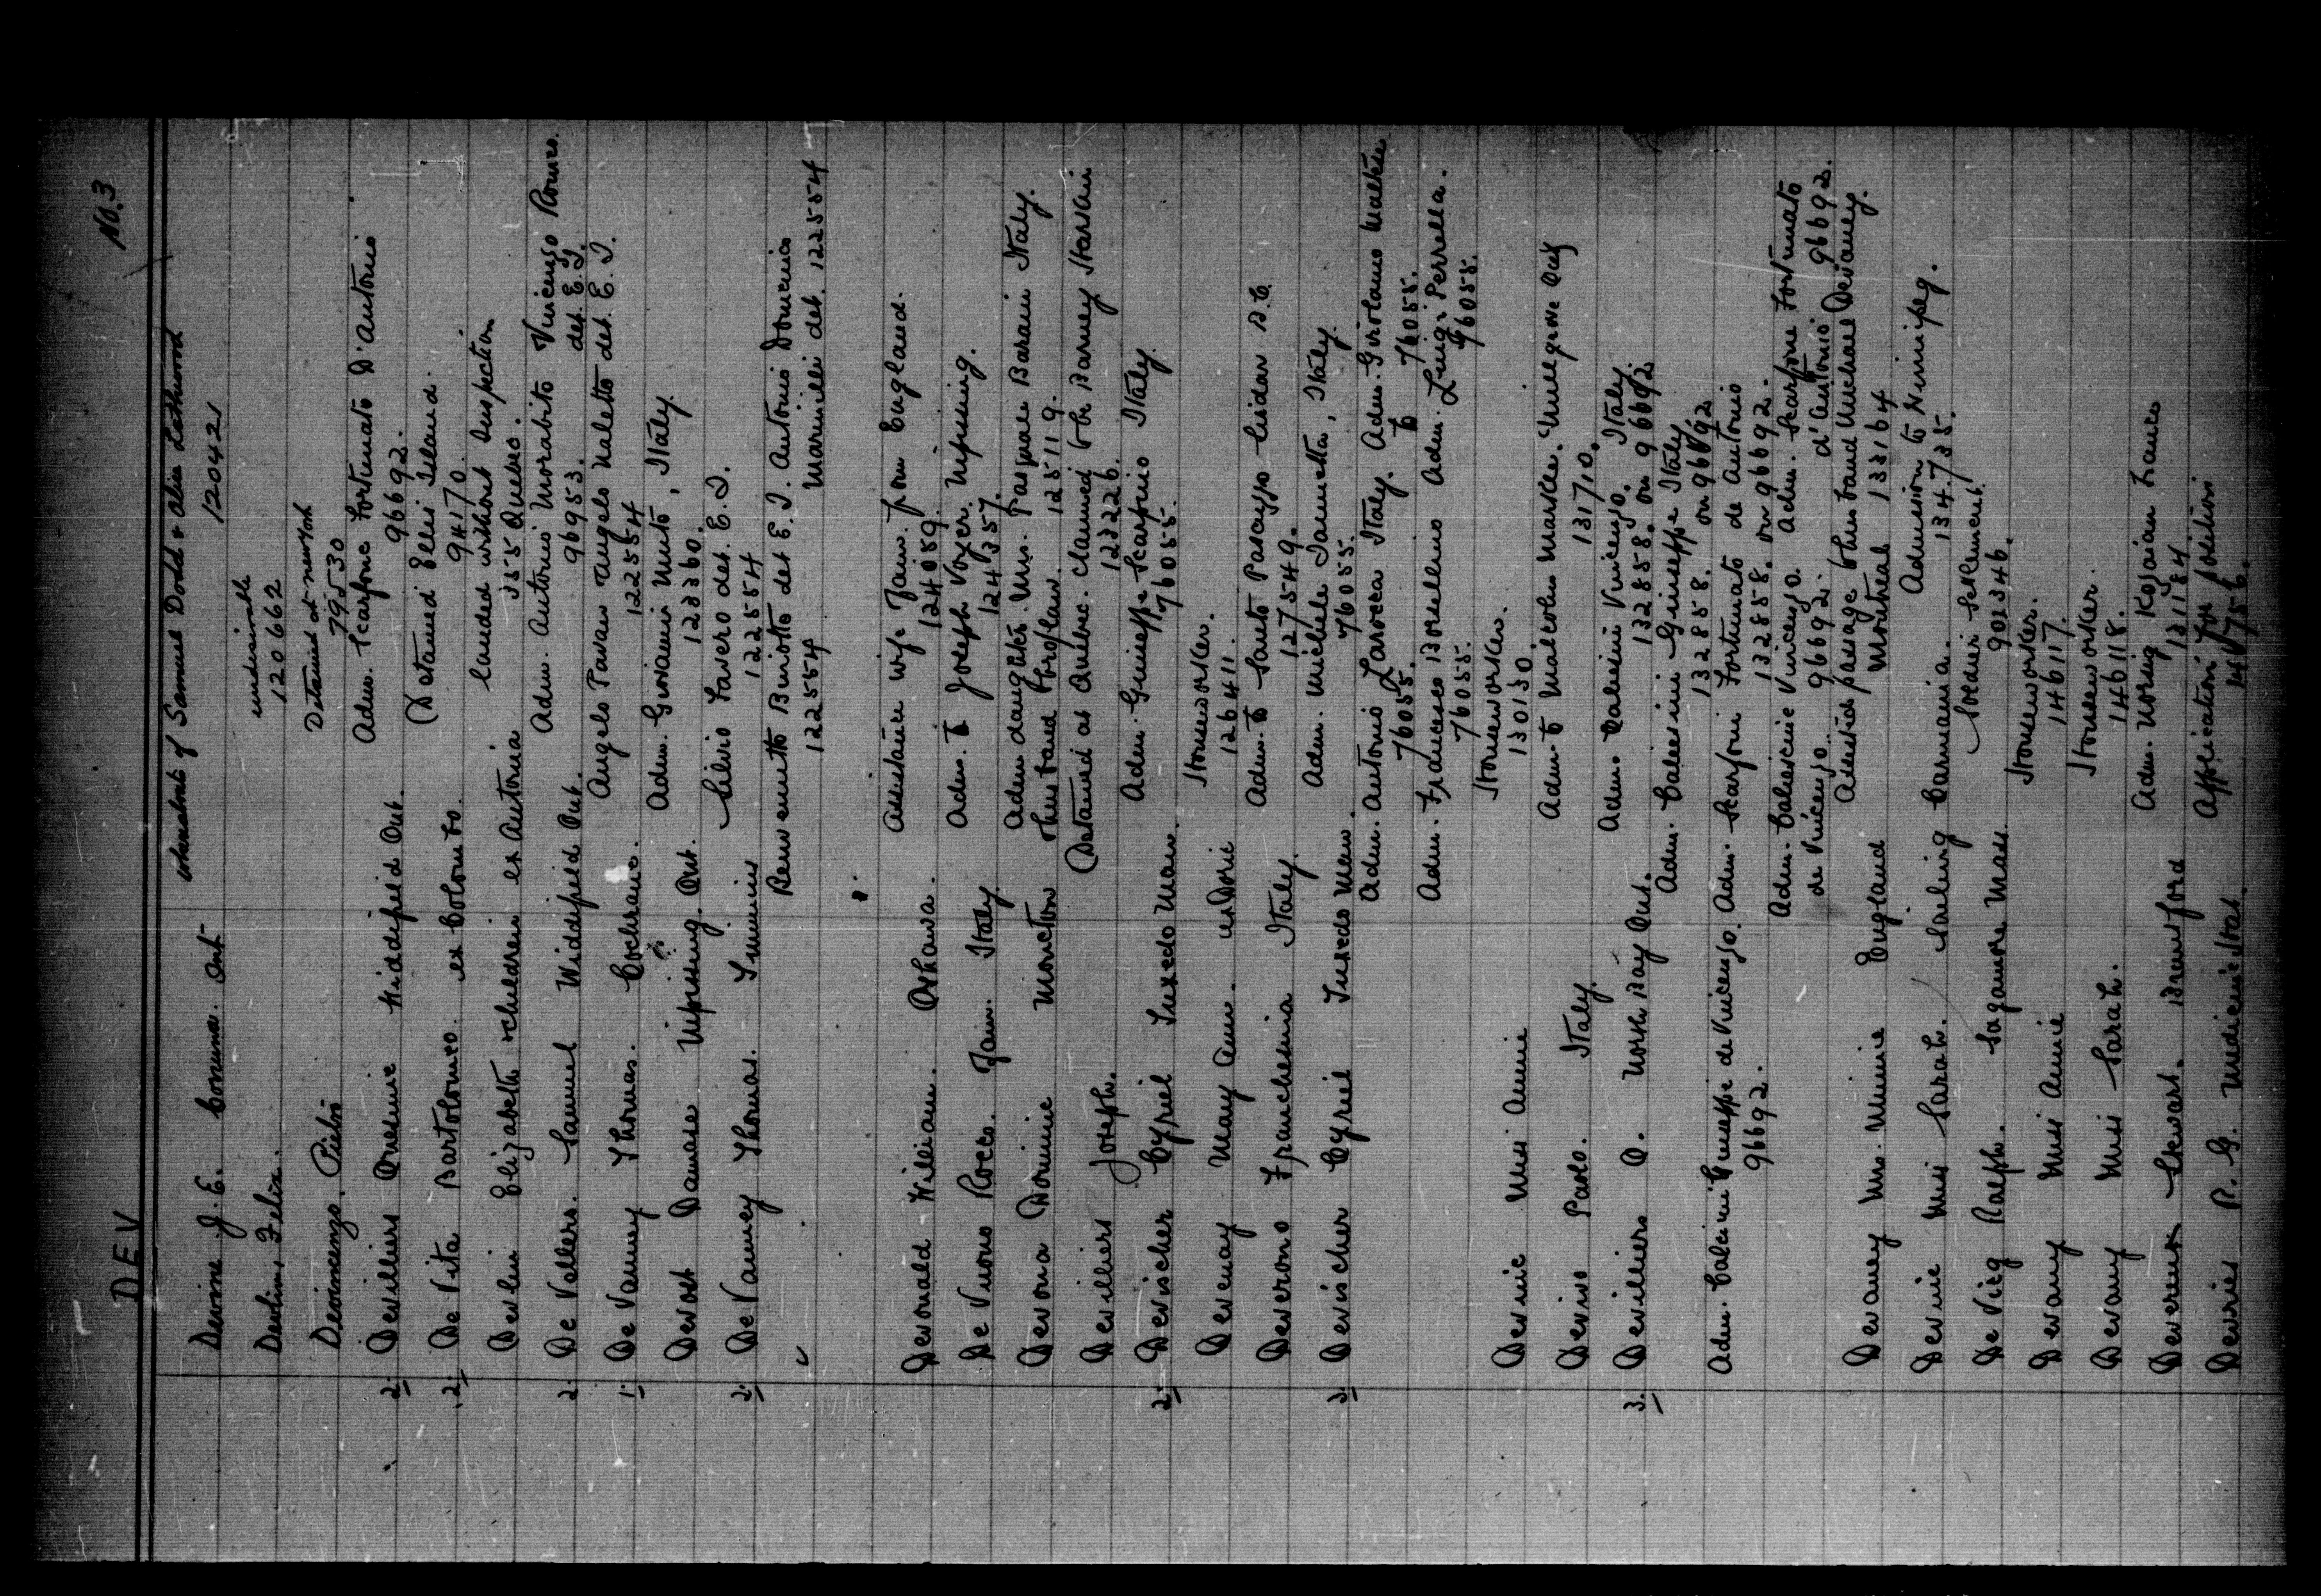 DEV
No. 3
Devine J. E. Corunna Ont whereabouts of Samuel Dodd & alice Lethwood
120421
Devlin, Felix. undesirable
120662
Devincenzo, Pietro Detained at new york
79530
2. Devilliers Onesime Widdifield Ont. Adm. Scarfone Fortunato D'Antonio
96692.
2. De Vita Bartolomeo ex Colombo Detained Ellis Island.
94170.
Devlin Elizabeth & children ex Astoria landed without Inspection
355 Quebec.
2. De Vellers. Samuel Widdifield Ont. Adm. Antonio Morabito Vincenzo Romeo
96953. det. E. I.
1. De Vanney Thomas. Cochrane. Angelo Pavan Angelo Naletto det. E. I.
122554
Devost Damase Nipissing. Ont. Adm. Giovanni Muto, Italy.
123360.
2. De Vanney Thomas. Timmins Silvio Favero det. E. I.
122554
Benvenutto Buiotto det E. I. Antonio Domenico
122554 Marinilli det. 122554
Devonald William. Oshawa. Assistance wife Fam. from England.
124089.
De Vuono Rocco. Fam. Italy. Adm. to Joseph Voyer. Nipissing.
124357.
Devona Dominic Moncton Adm daughter Mrs. Pasquale Barain Italy.
husband & bro/law. 125119.
Devilliers Joseph. Detained at Quebec. claimed by Barney
123226.
2. Devischer Cyriel Tuxedo Man. Adm. Guiseppe Scarfino Italy.
76055.
Devenay Mary Ann. ex Doric Houseworker.
126411.
Deverono Franchesina Italy. Adm. to Santo Pascuzzo B.C.
127549.
3. Devischer Cyriel Tuxedo Man. Adm. Michele Iannetta, Italy.
76055.
Adm. Antonio Larocca Italy. Adm. Girolamo
76055. to 76055.
Adm. Francesco Adm. Luigi Perrella.
76055. 76055.
Houseworker.
130130
Devine Miss Annie Adm. to Malcolm Markle. Mulgrove
131710.
Devivo Paolo. Italy. Adm. Calesini Vincenzo. Italy.
132858. on 96692.
3. Devilliers O. North Bay Ont. Adm. Calesini Guiseppe Italy
132858. on 96692
Adm. Calcini Guiseppe de Vincenzo. Adm. Scarfoni Fortunato de Antonio
96692. 132858. on 96692.
Adm. Calescine Vincenzo. Adm. Scarfone Fortunato
de Vincenzo. 96692. d'Antonio. 96692.
Devaney Mrs. Minnie England Assisted passage & husband Michael Devaney.
Montreal 133164
Devine Miss Sarah. Sailing Carmania. Admission to Winnipeg.
134735.
De Vicq Ralph. Sagamore Mass. Soldier Settlement.
902346.
Devany Miss Annie Houseworker.
146117.
Devany Miss Sarah. Houseworker.
146118.
Devereux Stewart. Brantford Adm. Kojaian France
131184
Devries P. G. Medicine Hat. Application for position